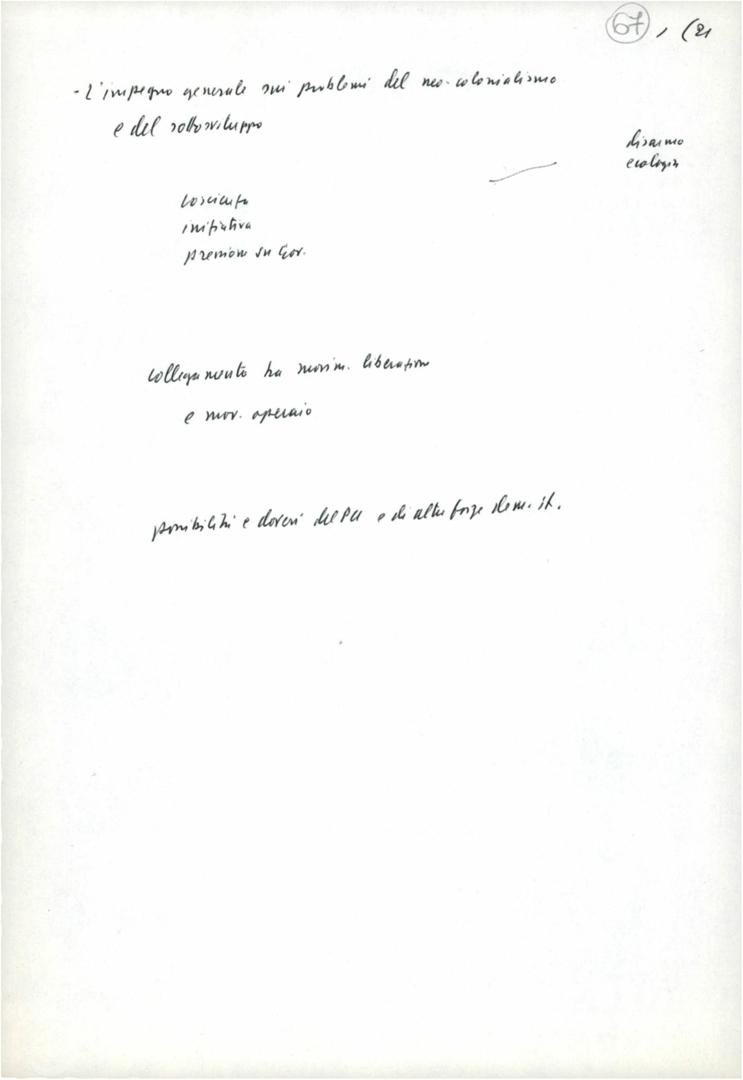 67, (21
- L'impegno generale sui problemi del neo-colonialismo
e del sottosviluppo
disarmo
ecologia
coscienza
iniziativa
pressione su Gov.
collegamento tra movim. liberazione
e mov. operaio
possibilità e doveri del PCI e di altre forze dem. it.